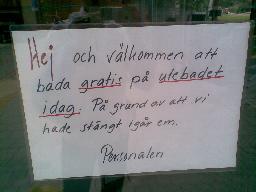 Hej och välkommen att
bada gratis på utebadet
idag. På grund av att vi
hade stängt igår em.
Personalen